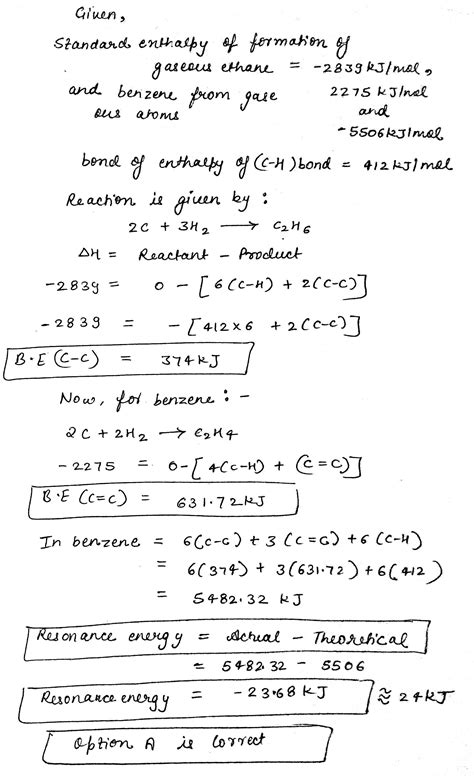 Given,
Standard enthalpy of formation of
gaseous ethane = -2839 kJ/mol,
and benzene from gase 2275 kJ/mol
ous atoms and
-5506 kJ/mol
bond of enthalpy of (C-H) bond = 412 kJ/mol
Reaction is given by :
2C + 3H₂ → C₂H₆
ΔH = Reactant - Product
-2839 = 0 - [6(C-H) + 2(C-C)]
-2839 = -[412×6 + 2(C-C)]
B·E (C-C) = 374 kJ
Now, for benzene : -
2C + 2H₂ → C₂H₄
-2275 = 0-[4(C-H) + (C=C)]
B·E (C=C) = 631.72 kJ
In benzene = 6(C-C) + 3(C=C) + 6(C-H)
= 6(374) + 3(631.72) + 6(412)
= 5482.32 kJ
Resonance energy = Actual - Theoretical
= 5482.32 - 5506
Resonance energy = -23.68 kJ ≈ 24 kJ
Option A is correct